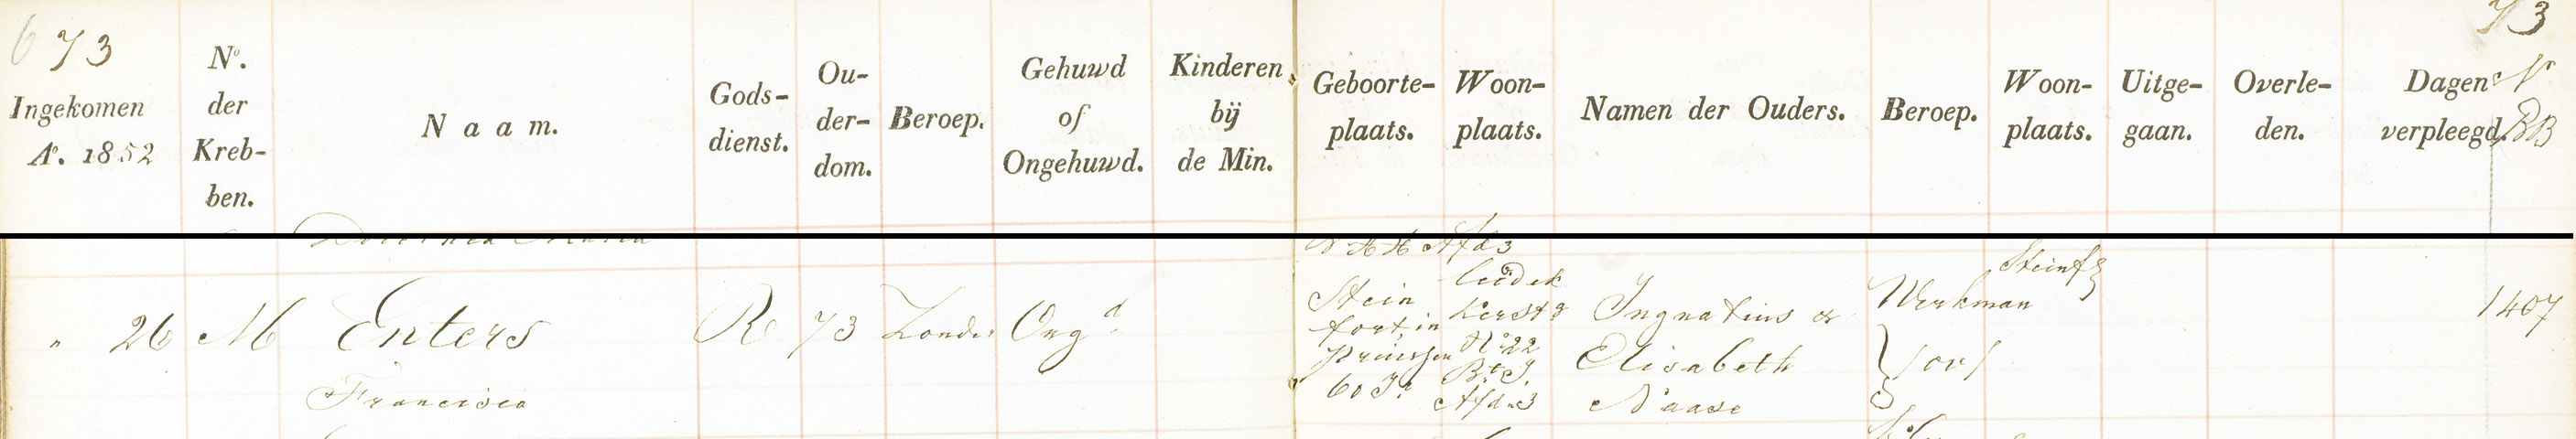 673
73
Ingekomen
Aº. 1852
Nº.
der
Kreb-
ben.
Naam.
Gods-
dienst.
Ou-
der-
dom.
Beroep.
Gehuwd
of
Ongehuwd.
Kinderen
bij
de Min.
Geboorte-
plaats.
Woon-
plaats.
Namen der Ouders.
Beroep.
Woon-
plaats.
Uitge-
gaan.
Overle-
den.
Dagen
verpleegd.
Nr
BB
Dorothea Maria
Afd 3
" 26 M Enters
Francisca
R 73 Zonder Ongd
Stein
fort in
Pruissen
60 Jr
Kerstg
Nº 22
Bt J.
Afd. 3
Ingnatius &
Elisabeth
Naase
Werkman
Steinf
1407